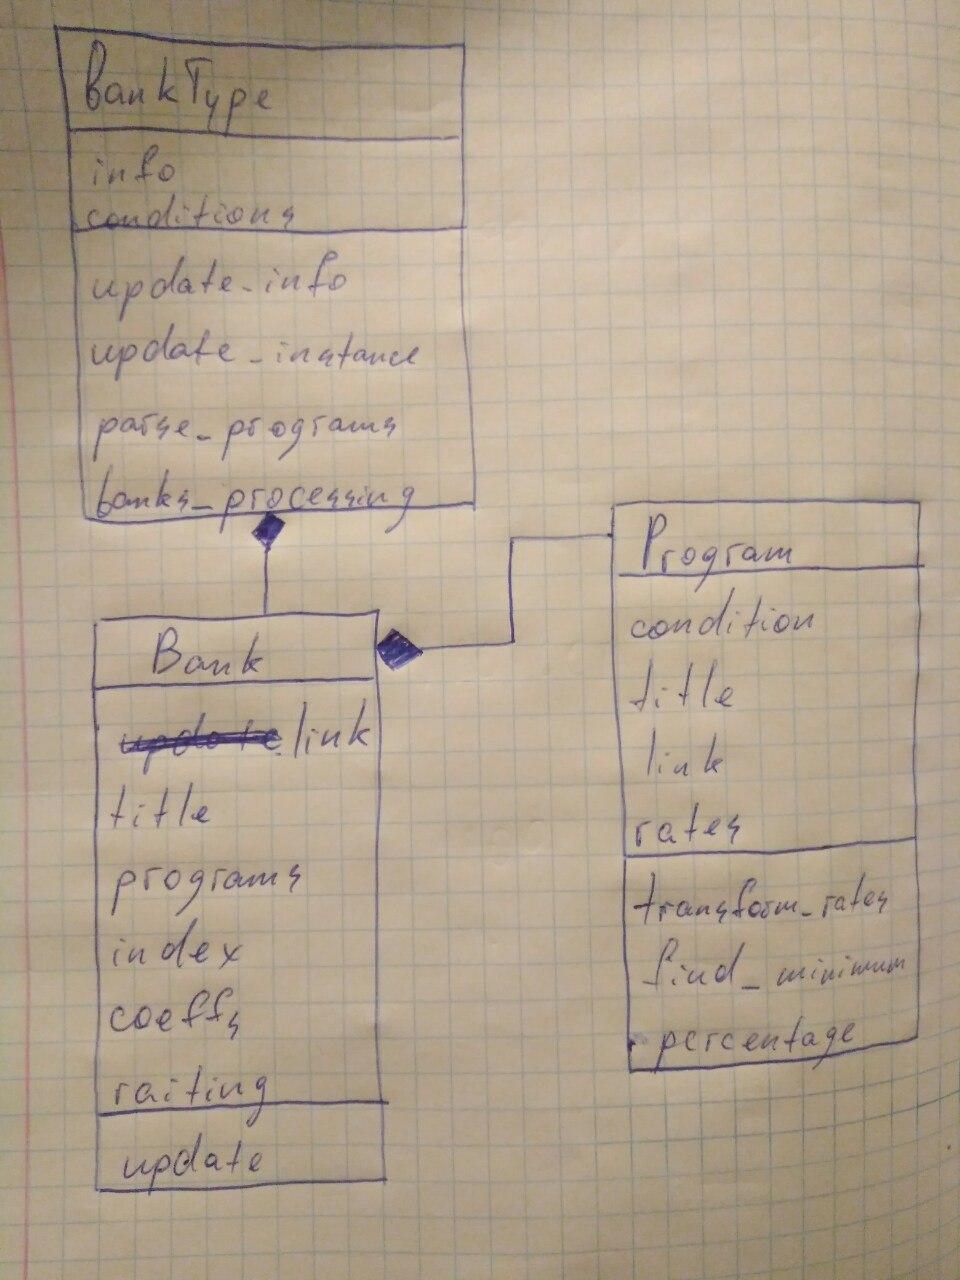 BankType
info
conditions
update_info
update_instance
parse_programs
banks_processing
Bank
update link
title
programs
index
coeffs
raiting
update
Program
condition
title
link
rates
transform_rates
find_minimum
percentage